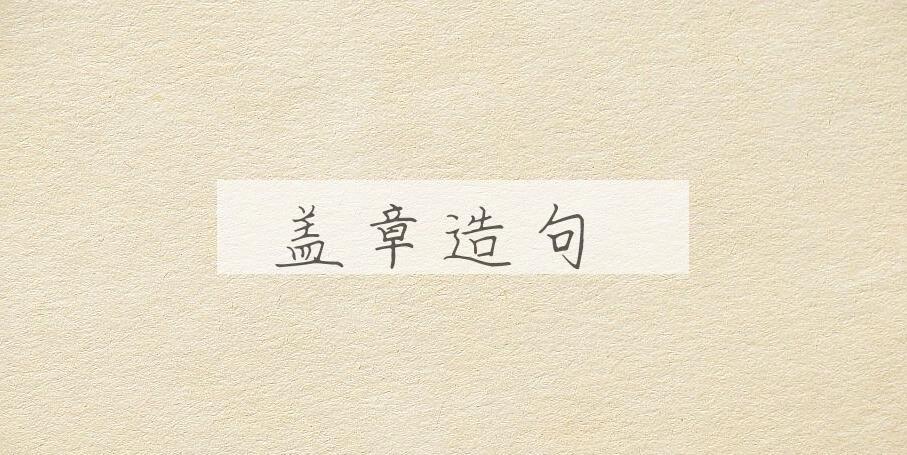 盖章造句